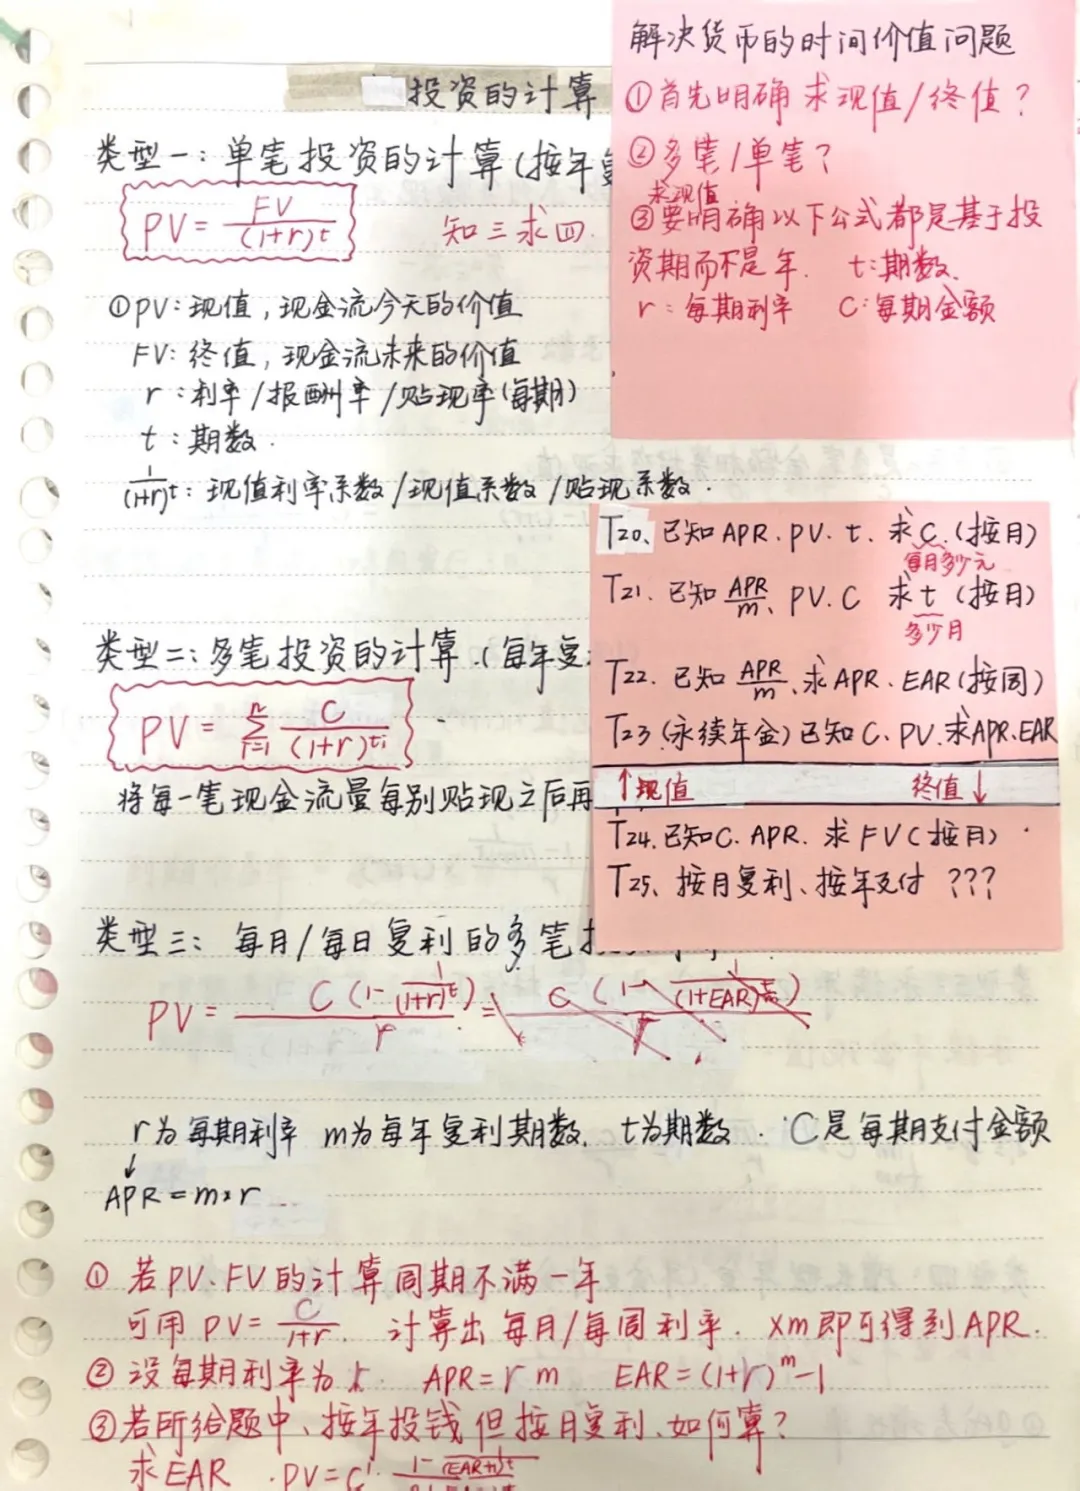 投资的计算
类型一：单笔投资的计算（按年复
PV = FV/(1+r)^t
知三求四.
①PV：现值，现金流今天的价值
FV：终值，现金流未来的价值
r：利率/报酬率/贴现率（每期）
t：期数.
1/(1+r)^t：现值利率系数/现值系数/贴现系数.
类型二：多笔投资的计算.（每年复
PV = n∑i=1 C/(1+r)^ti
将每一笔现金流量每别贴现之后再
类型三：每月/每日复利的多笔
PV = C(1-1/(1+r)^t)/r = C(1-1/(1+EAR))/r
r为每期利率 m为每年复利期数. t为期数. C是每期支付金额
↓
APR=m×r
① 若PV、FV的计算周期不满一年
可用 PV= C/1+r. 计算出每月/每周利率. ×m即可得到APR.
② 设每期利率为r. APR=r m EAR=(1+r)^m-1
③若所给题中、按年投钱但按月复利、如何算？
求EAR .PV=C· 1-1/(EAR+1)^t
解决货币的时间价值问题
①首先明确求现值/终值？
②多笔/单笔？
求现值
③要明确以下公式都是基于投
资期而不是年. t：期数、
r：每期利率 C：每期金额
T20、已知APR.PV.t.求C.（按月）
每月多少元
T21.已知APR/m、PV.C 求t（按月）
多少月
T22.已知APR/m、求APR.EAR（按周）
T23（永续年金）已知C.PV.求APR.EAR
↑现值 终值↓
T24.已知C.APR.求FV（按月）
T25、按月复利、按年支付 ???